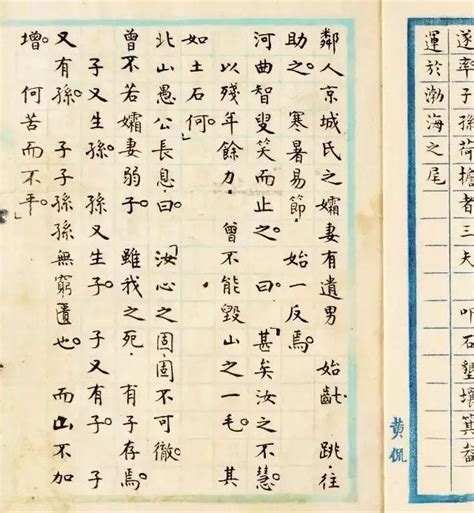 遂率子孫荷擔者三夫 叩石墾壤 箕畚
運於渤海之尾
黄侃
鄰人京城氏之孀妻有遺男 始齔 跳往
助之。 寒暑易節 始一反焉。
河曲智叟笑而止之。曰。「甚矣汝之不慧。
以殘年餘力。 曾不能毀山之一毛。 其
如土石何。」
北山愚公長息。曰。「汝心之固。固不可徹。
曾不若孀妻弱子。 雖我之死 有子存焉。
子又生孫。 孫又生子。 子又有子。 子
又有孫。 子子孫孫無窮匱也。 而山不加
增。 何苦而不平。」